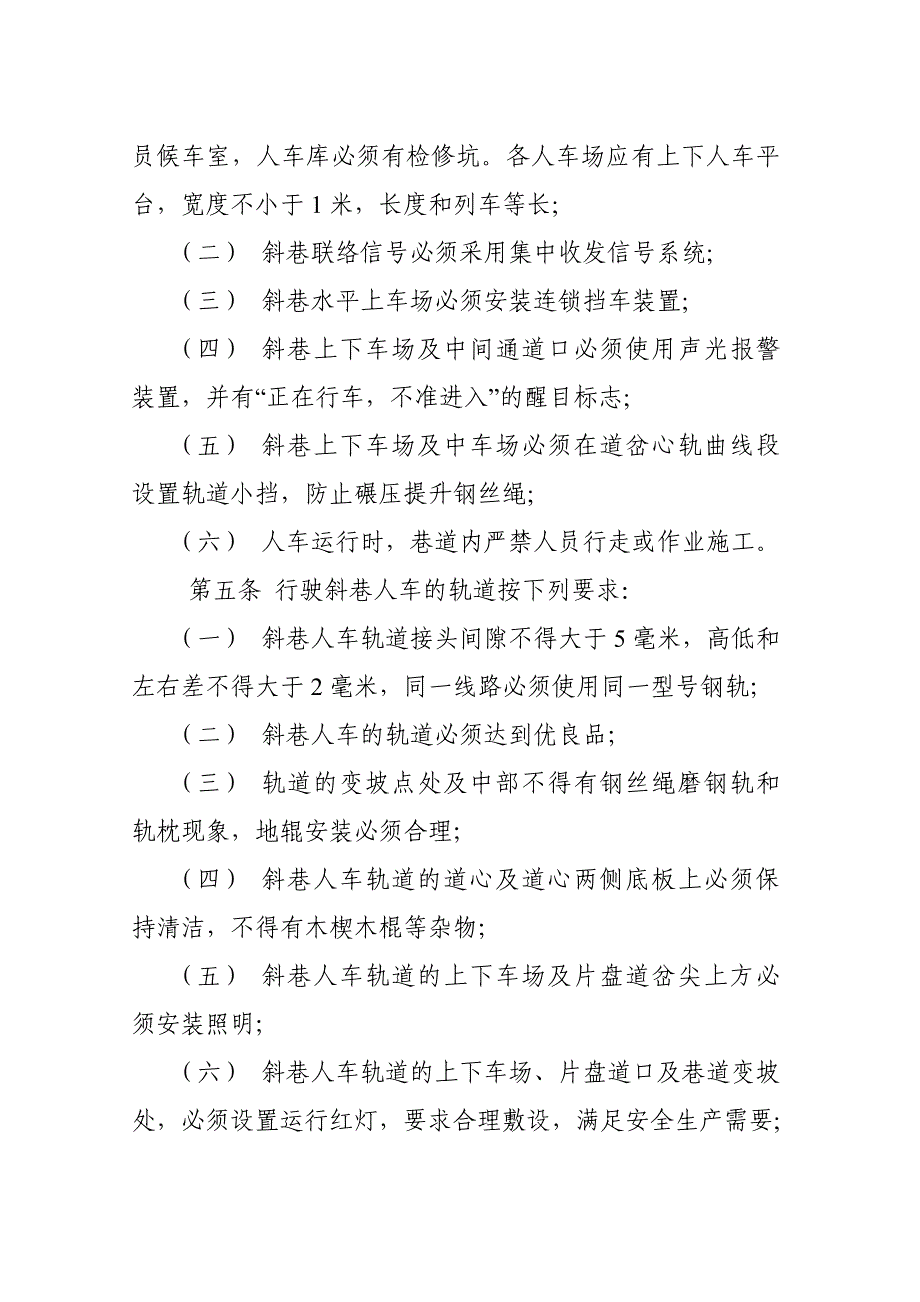 员候车室，人车库必须有检修坑。各人车场应有上下人车平
台，宽度不小于1米，长度和列车等长;
（二） 斜巷联络信号必须采用集中收发信号系统;
（三） 斜巷水平上车场必须安装连锁挡车装置;
（四） 斜巷上下车场及中间通道口必须使用声光报警
装置，并有“正在行车，不准进入”的醒目标志;
（五） 斜巷上下车场及中车场必须在道岔心轨曲线段
设置轨道小挡，防止碾压提升钢丝绳;
（六） 人车运行时，巷道内严禁人员行走或作业施工。
第五条 行驶斜巷人车的轨道按下列要求：
（一） 斜巷人车轨道接头间隙不得大于5毫米，高低和
左右差不得大于2毫米，同一线路必须使用同一型号钢轨;
（二） 斜巷人车的轨道必须达到优良品;
（三） 轨道的变坡点处及中部不得有钢丝绳磨钢轨和
轨枕现象，地辊安装必须合理;
（四） 斜巷人车轨道的道心及道心两侧底板上必须保
持清洁，不得有木楔木棍等杂物;
（五） 斜巷人车轨道的上下车场及片盘道岔尖上方必
须安装照明;
（六） 斜巷人车轨道的上下车场、片盘道口及巷道变坡
处，必须设置运行红灯，要求合理敷设，满足安全生产需要;